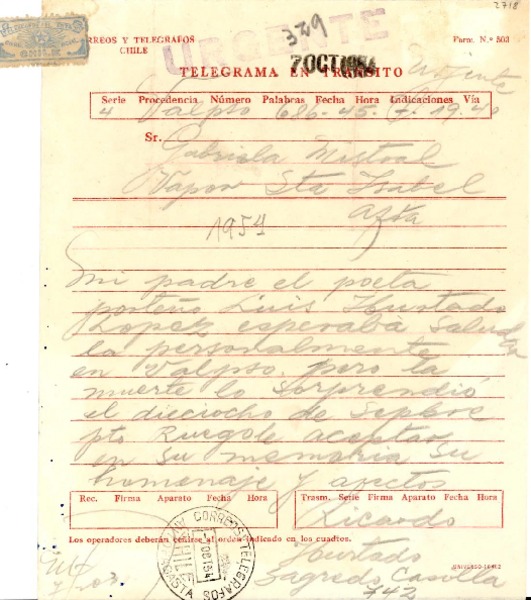 2718
CORREOS Y TELEGRAFOS
CHILE
URGENTE
329
Form. N.º 503
7 OCT 1954
TELEGRAMA EN TRANSITO
Urgente
Serie Procedencia Número Palabras Fecha Hora Indicaciones Vía
4 Valpso 686 - 45 - 7 - 19.40
Sr. Gabriela Mistral
Vapor Sta Isabel
Afta
1954
Mi padre el poeta
porteño Luis Hurtado
Lopez esperaba saludar
la personalmente
en Valpso. pero la
muerte lo sorprendió
el dieciocho de Sepbre
pto Ruegole aceptar
en su memoria su
homenaje y afectos
Rec. Firma Aparato Fecha Hora
Trasm. Serie Firma Aparato Fecha Hora
Ricardo
Los operadores deberán ceñirse al orden indicado en los cuadros.
Hurtado
CORREOS Y TELEGRAFOS
CHILE
Sagredo Casilla
742